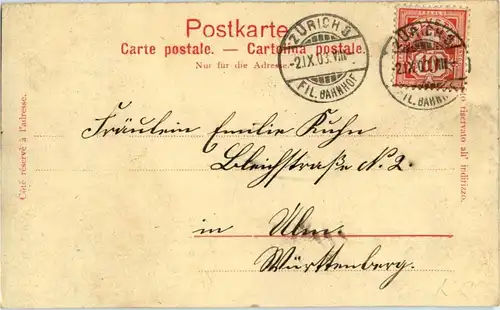 Postkarte.
Carte postale. — Cartolina postale.
Nur für die Adresse.
ZÜRICH 3
-2.IX.03.VIII-
FIL. BAHNHOF
ZÜRICH 3
-2.IX.03.VIII-
FIL. BAHNHOF
10
Côté réservé à l'adresse.
riservato all' indirizzo.
Fräulein Emilie Kuhn
Bleichstraße N. 2.
in Ulm.
Württenberg.